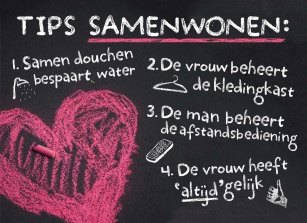 TIPS SAMENWONEN:
1. Samen douchen
bespaart water
2. De vrouw beheert
de kledingkast
3. De man beheert
de afstandsbediening
4. De vrouw heeft
'altijd' gelijk